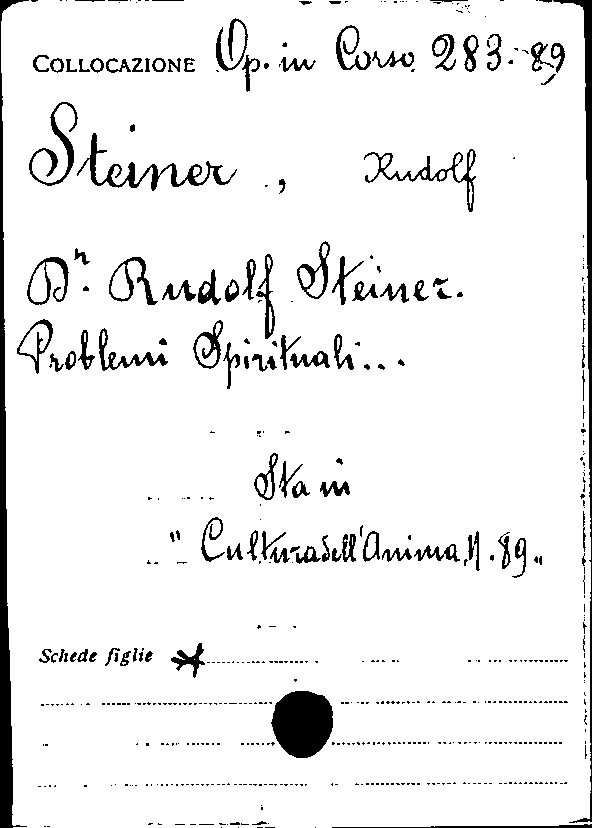 COLLOCAZIONE Op. in Corso 283.-89
Steiner, Rudolf
Dr. Rudolf Steiner.
Problemi Spirituali...
Sta in
"Cultura dell'Anima, N. 89„
Schede figlie *